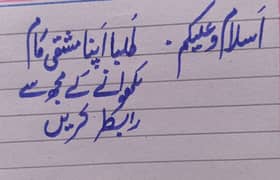 اسلام وعلیکم. طلبا اپنا مشقی کام
لکھوانے کے مجھ سے
رابطہ کریں